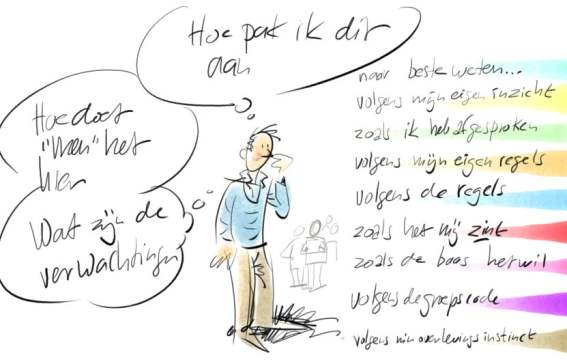 Hoe pak ik dit
aan
Hoe doet
"men" het
hier
Wat zijn de
verwachtingen
naar beste weten...
volgens mijn eigen inzicht
zoals ik heb afgesproken
volgens mijn eigen regels
volgens de regels
zoals het mij zint
zoals de baas het wil
volgens de groepscode
volgens mijn overlevingsinstinct